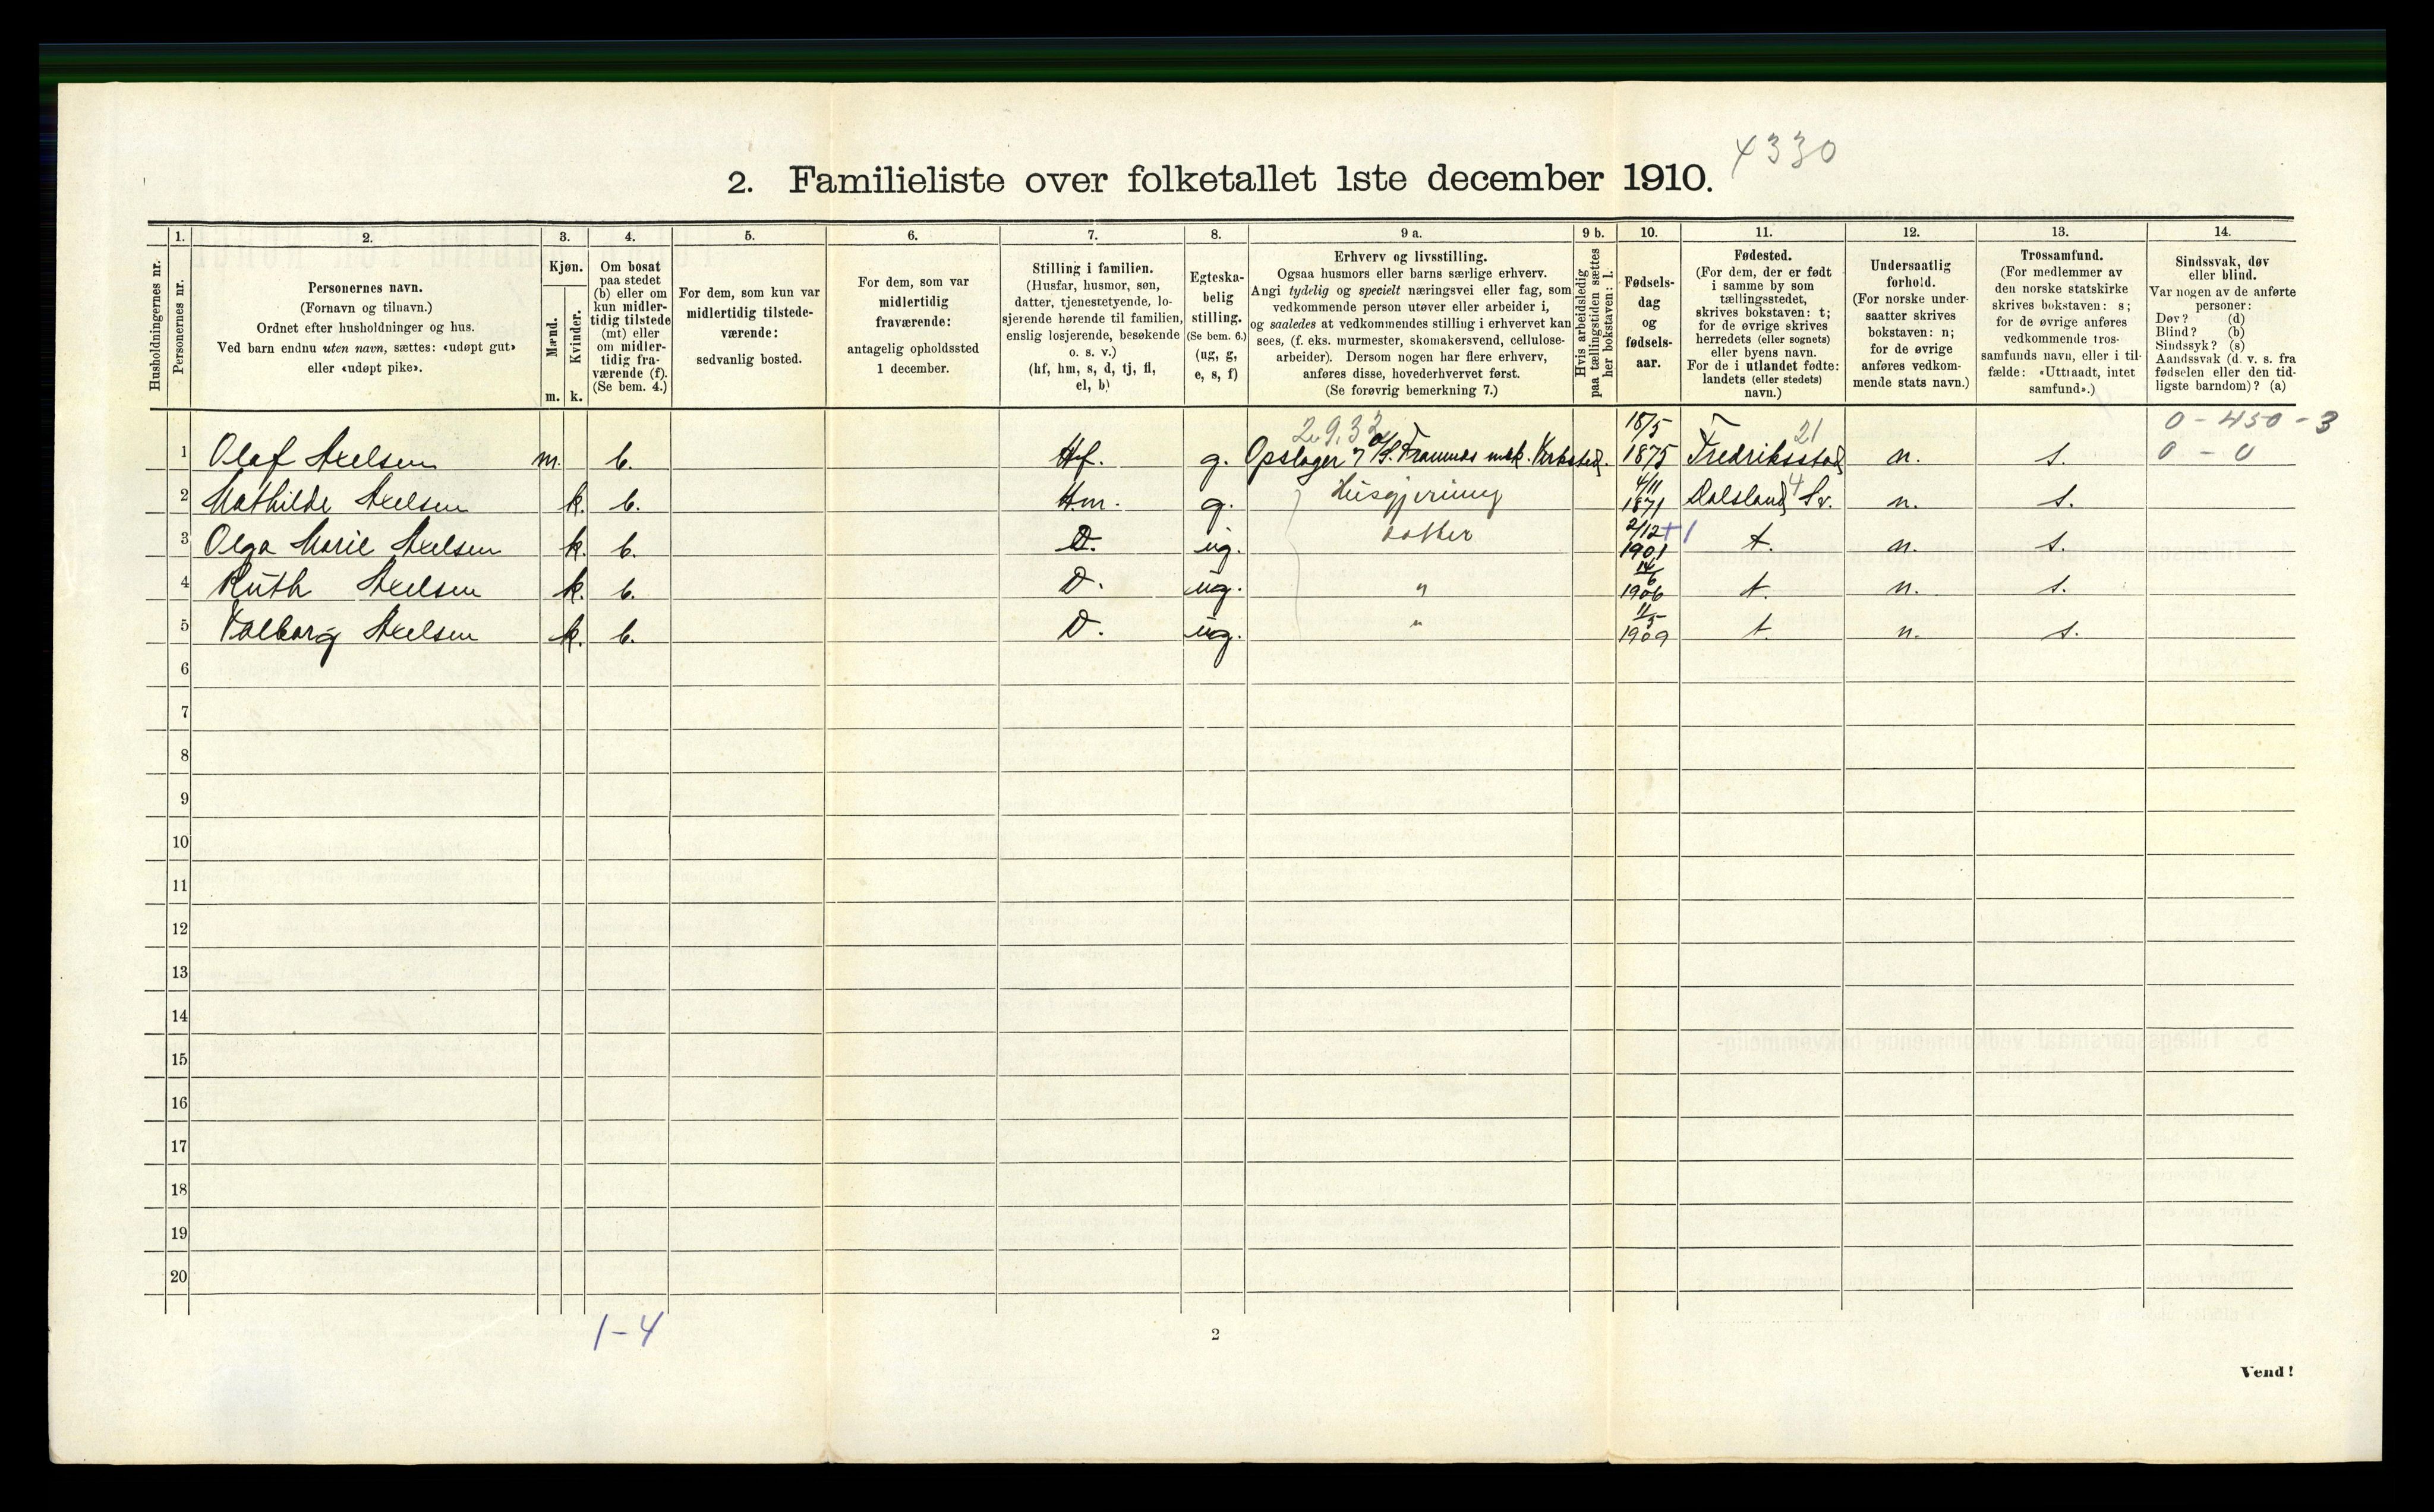 4330
2. Familieliste over folketallet 1ste december 1910.
Husholdningernes nr.
1. Personernes nr.
2. Personernes navn.
(Fornavn og tilnavn.)
Ordnet efter husholdninger og hus.
Ved barn endnu uten navn, sættes: «udøpt gut»
eller «udøpt pike».
3. Kjøn.
Mænd. m.
Kvinder. k.
4. Om bosat
paa stedet
(b) eller om
kun midler-
tidig tilstede
(mt) eller
om midler-
tidig fra-
værende (f).
(Se bem. 4.)
5. For dem, som kun var
midlertidig tilstede-
værende:
sedvanlig bosted.
6. For dem, som var
midlertidig
fraværende:
antagelig opholdssted
1 december.
7. Stilling i familien.
(Husfar, husmor, søn,
datter, tjenestetyende, lo-
sjerende hørende til familien,
enslig losjerende, besøkende
o. s. v.)
(hf, hm, s, d, tj, fl,
el, b)
8. Egteska-
belig
stilling.
(Se bem. 6.)
(ug, g,
e, s, f)
9 a. Erhverv og livsstilling.
Ogsaa husmors eller barns særlige erhverv.
Angi tydelig og specielt næringsvei eller fag, som
vedkommende person utøver eller arbeider i,
og saaledes at vedkommendes stilling i erhvervet kan
sees, (f. eks. murmester, skomakersvend, cellulose-
arbeider). Dersom nogen har flere erhverv,
anføres disse, hovederhvervet først.
(Se forøvrig bemerkning 7.)
9 b. Hvis arbeidsledig
paa tællingstiden sættes
her bokstaven: l.
10. Fødsels-
dag
og
fødsels-
aar.
11. Fødested.
(For dem, der er født
i samme by som
tællingsstedet,
skrives bokstaven: t;
for de øvrige skrives
herredets (eller sognets)
eller byens navn.
For de i utlandet fødte:
landets (eller stedets)
navn.)
12. Undersaatlig
forhold.
(For norske under-
saatter skrives
bokstaven: n;
for de øvrige
anføres vedkom-
mende stats navn.)
13. Trossamfund.
(For medlemmer av
den norske statskirke
skrives bokstaven: s;
for de øvrige anføres
vedkommende tros-
samfunds navn, eller i til-
fælde: «Uttraadt, intet
samfund».)
14. Sindssvak, døv
eller blind.
Var nogen av de anførte
personer:
Døv? (d)
Blind? (b)
Sindssyk? (s)
Aandssvak (d. v. s. fra
fødselen eller den tid-
ligste barndom)? (a)
2.9.32 18/5 21 0 - 450 - 3
1 Olaf Axelsen m. b. Hf. g. Opslager A/S. Framnæs mek. Verksted. 1875 Fredriksstad n. s. 0 - 0
2 Mathilde Axelsen k. b. Hm. g. Husgjerning 4/11 1871 Dalsland 4 Sv. n. s.
3 Olga Marie Axelsen k. b. D. ug. Datter 2/12 + 1 1901 t. n. s.
4 Ruth Axelsen k. b. D. ug. " 14/6 1906 t. n. s.
5 Valborg Axelsen k. b. D. ug. " 11/5 1909 t. n. s.
6
7
8
9
10
11
12
13
14
15
16
17
18
19
20
1-4
2
Vend!